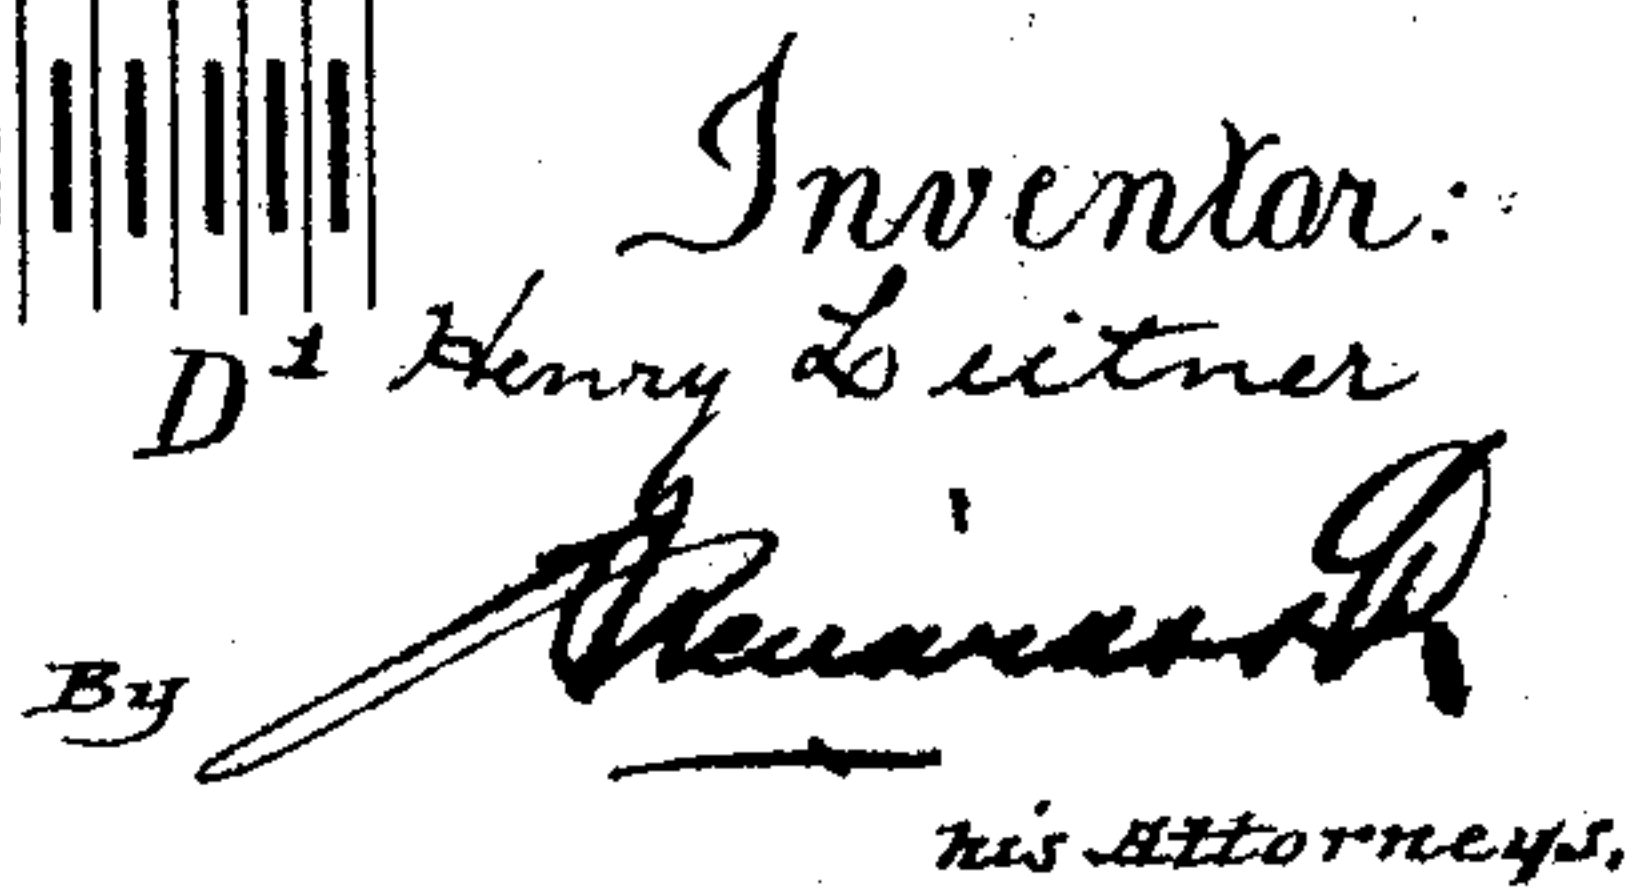 Inventor:
Henry Leitner
By
his Attorneys.